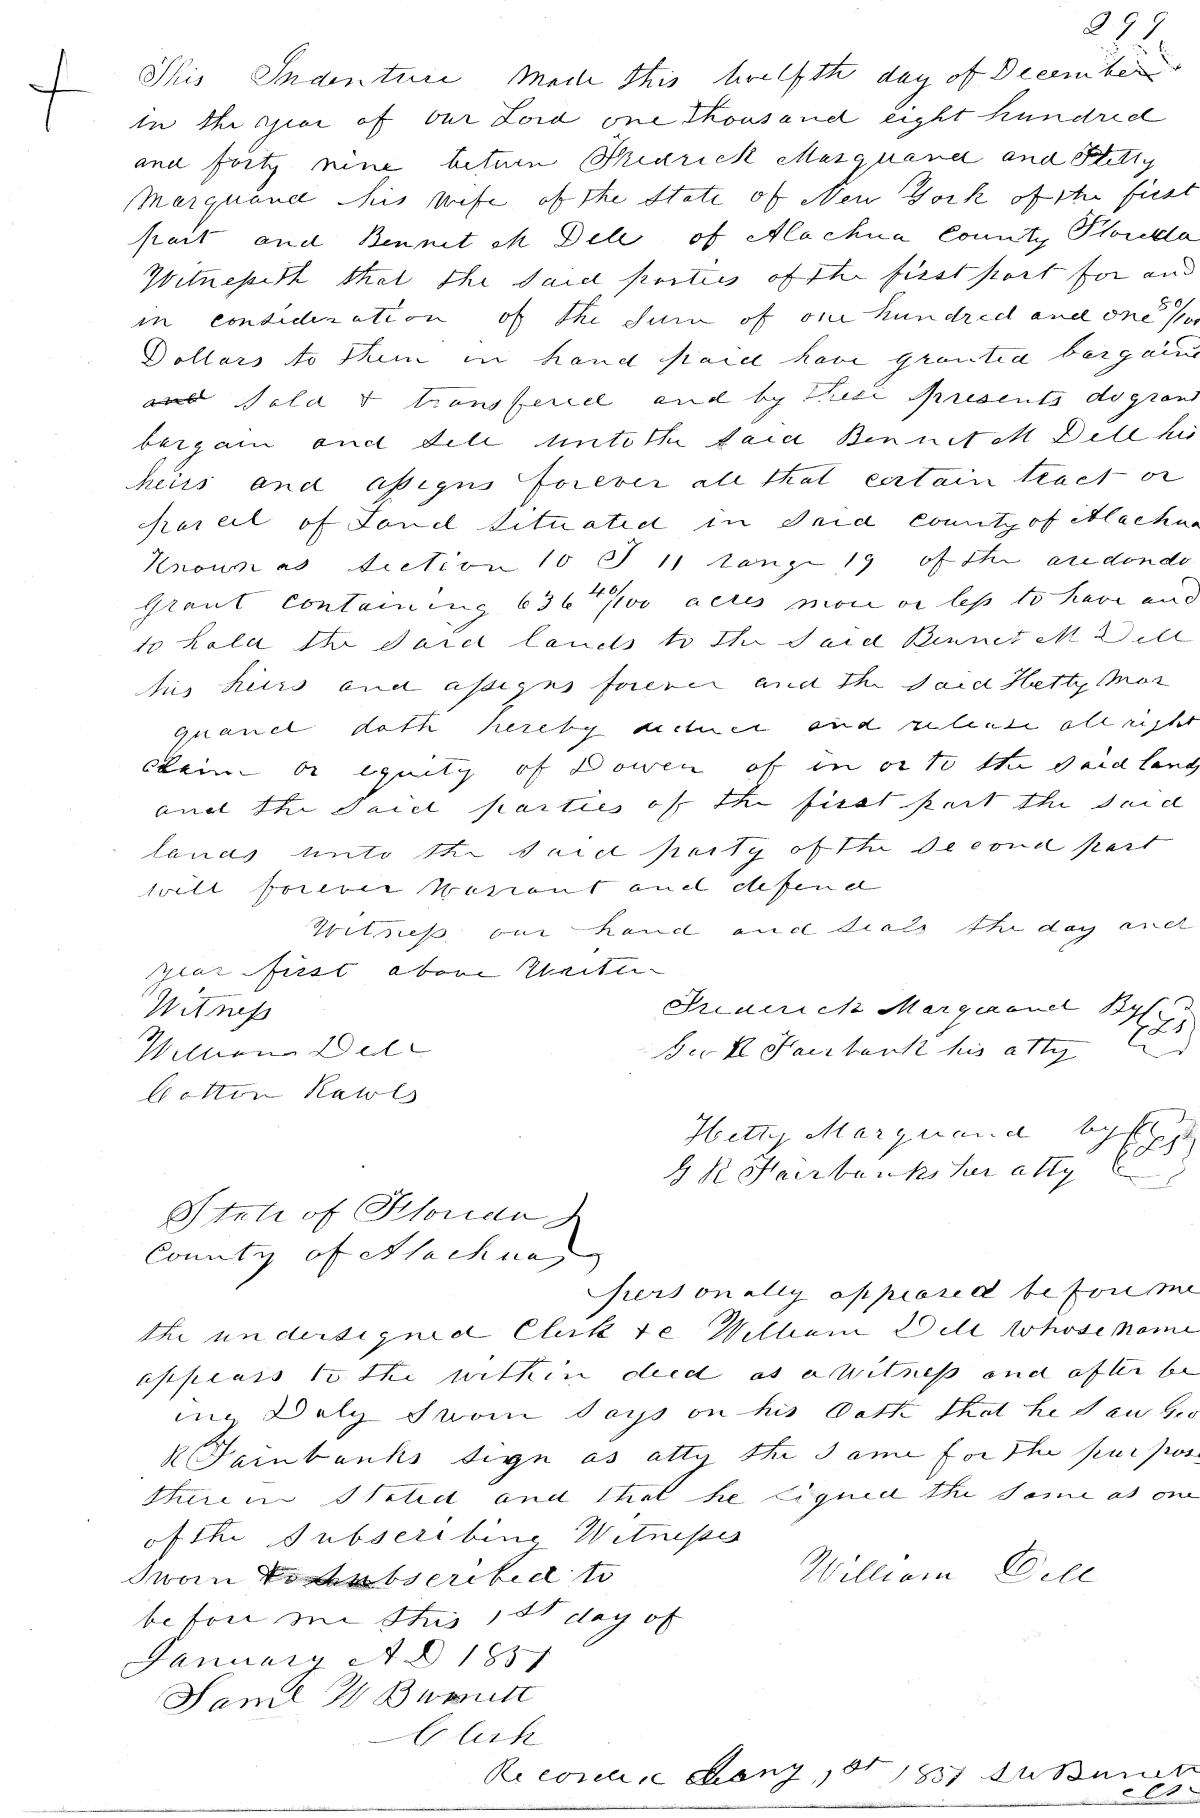 299
This Indenture Made this twelfth day of December
in the year of our Lord one thousand eight hundred
and forty nine between Fredrick Marquand and Hetty
Marquand his wife of the State of New York of the first
part and Bennet M Dell of Alachua County Florida
Witnesseth that the said parties of the first part for and
in consideration of the Sum of one hundred and one 80/100
Dollars to them in hand paid have granted bargaine
and Sold & transfered and by these presents do grant
bargain and Sell unto the said Bennet M Dell his
heirs and assigns forever all that certain tract or
parcel of Land Situated in said county of Alachua
Known as Section 10 T 11 range 19 of the aredondo
Grant containing 636 40/100 acres more or less to have and
to hold the said lands to the said Bennet M Dell
his heirs and assigns forever and the said Hetty Mar
quand doth hereby and release all right
claim or equity of Dower of in or to the said lands
and the Said parties of the first part the said
lands unto the said party of the second part
will forever Warrant and defend
Witness our hand and Seals the day and
year first above Writen
Witness
William Dell
Cotton Rawls
Frederick Marquand By LS
Geo R Fairbank his atty
Hetty Marquand by LS
G R Fairbanks her atty
State of Florida
County of Alachua
personally appeared before me
the undersigned Clerk &c William Dell whose name
appears to the within deed as a Witness and after be
ing Duly Sworn Says on his Oath that he Saw Geo
R Fairbanks sign as atty the same for the purpose
therein Stated and that he signed the same as one
of the Subscribing Witnesses
Sworn to subscribed to
William Dell
before me this 1st day of
January A D 1851
Saml W Burnett
Clerk
Recorded Jany 1st 1851 SW Burnett
Clk